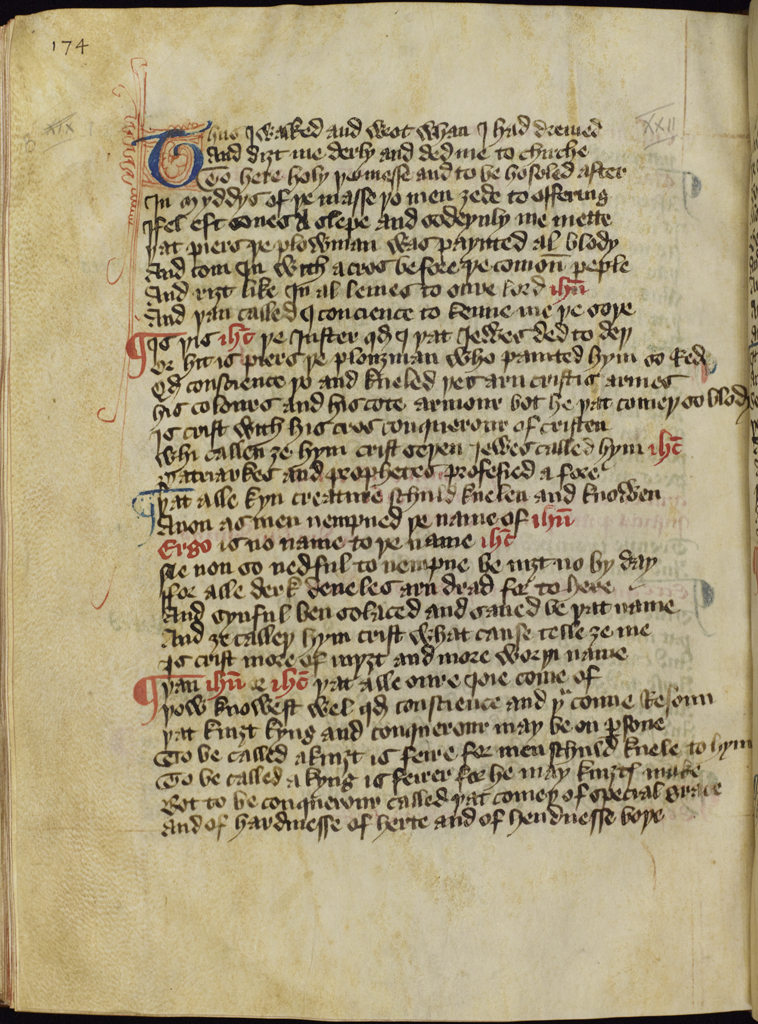 174
XIX
XXII
Thus I walked and wrot whan I had dremed
And diȝt me derly and ded me to chirche
To here holy þe messe and to be hoseled after
In myddys of þe masse þo men ȝede to offering
I fel eft sones a slepe and sodeynly me mette
þat piers þe plowman was paynted al blody
And com In with a cros before þe comoun peple
And riȝt like In al lemes to oure lord ihu̅
And þan called I concience to kenne me þe soþe
Is þis ihc̅ þe Iuster qd̅ I þat Iewes ded to deþ
Or hit is piers þe plouȝman who painted hym so Rede
Qd̅ conscience þo and kneled þes arn cristis armes
his colours and his cote armour bot he þat comeþ so blody
Is crist with his cros conquerour of cristen
Whi callen ȝe hym crist seþen Iewes called hym ihc̅
Patriarkes and prophetes profesied a fore
þat alle kyn creature schuld knelen and knowen
Anon as men nempned þe name of ihu̅
Ergo is no name to þe name ihc̅
Ne non so nedful to nempne be niȝt no by day
For alle derk deueles arn drad for to here
And synful ben solaced and saued be þat name
And ȝe calleþ hym crist what cause telle ȝe me
Is crist more of myȝt and more worþi name
þan ihu̅ or ihc̅ þat alle oure ioie come of
þow knowest wel qd̅ conscience and þu conne Resoun
þat kniȝt kyng and conquerour may be on psone
To be called a kniȝt is feire for men schuld knele to hym
To be called a kyng is feirer for he may kniȝtes make
Bot to be conquerour called þat comeþ of special grace
and of hardinesse of herte and of hendnesse boþe